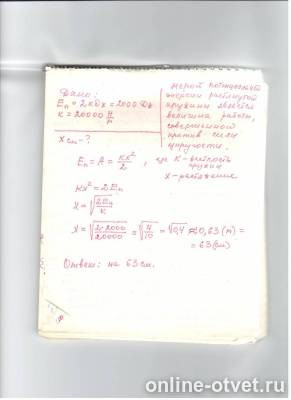 Дано:
Eп = 2 кДж = 2000 Дж
к = 20000 Н/м
X см - ?
мерой потенциальной
энергии растянутой
пружины является
величина работы,
совершенной
против силы
упругости.
Eп = A = кx²/2, где К - жёсткость
пружины
X - растяжение
кx² = 2Eп
X = √(2Eп/к)
X = √(2·2000/20000) = √(4/10) = √0,4 ≈ 0,63 (м) =
= 63 (см)
Ответ: на 63 см.
online-otvet.ru